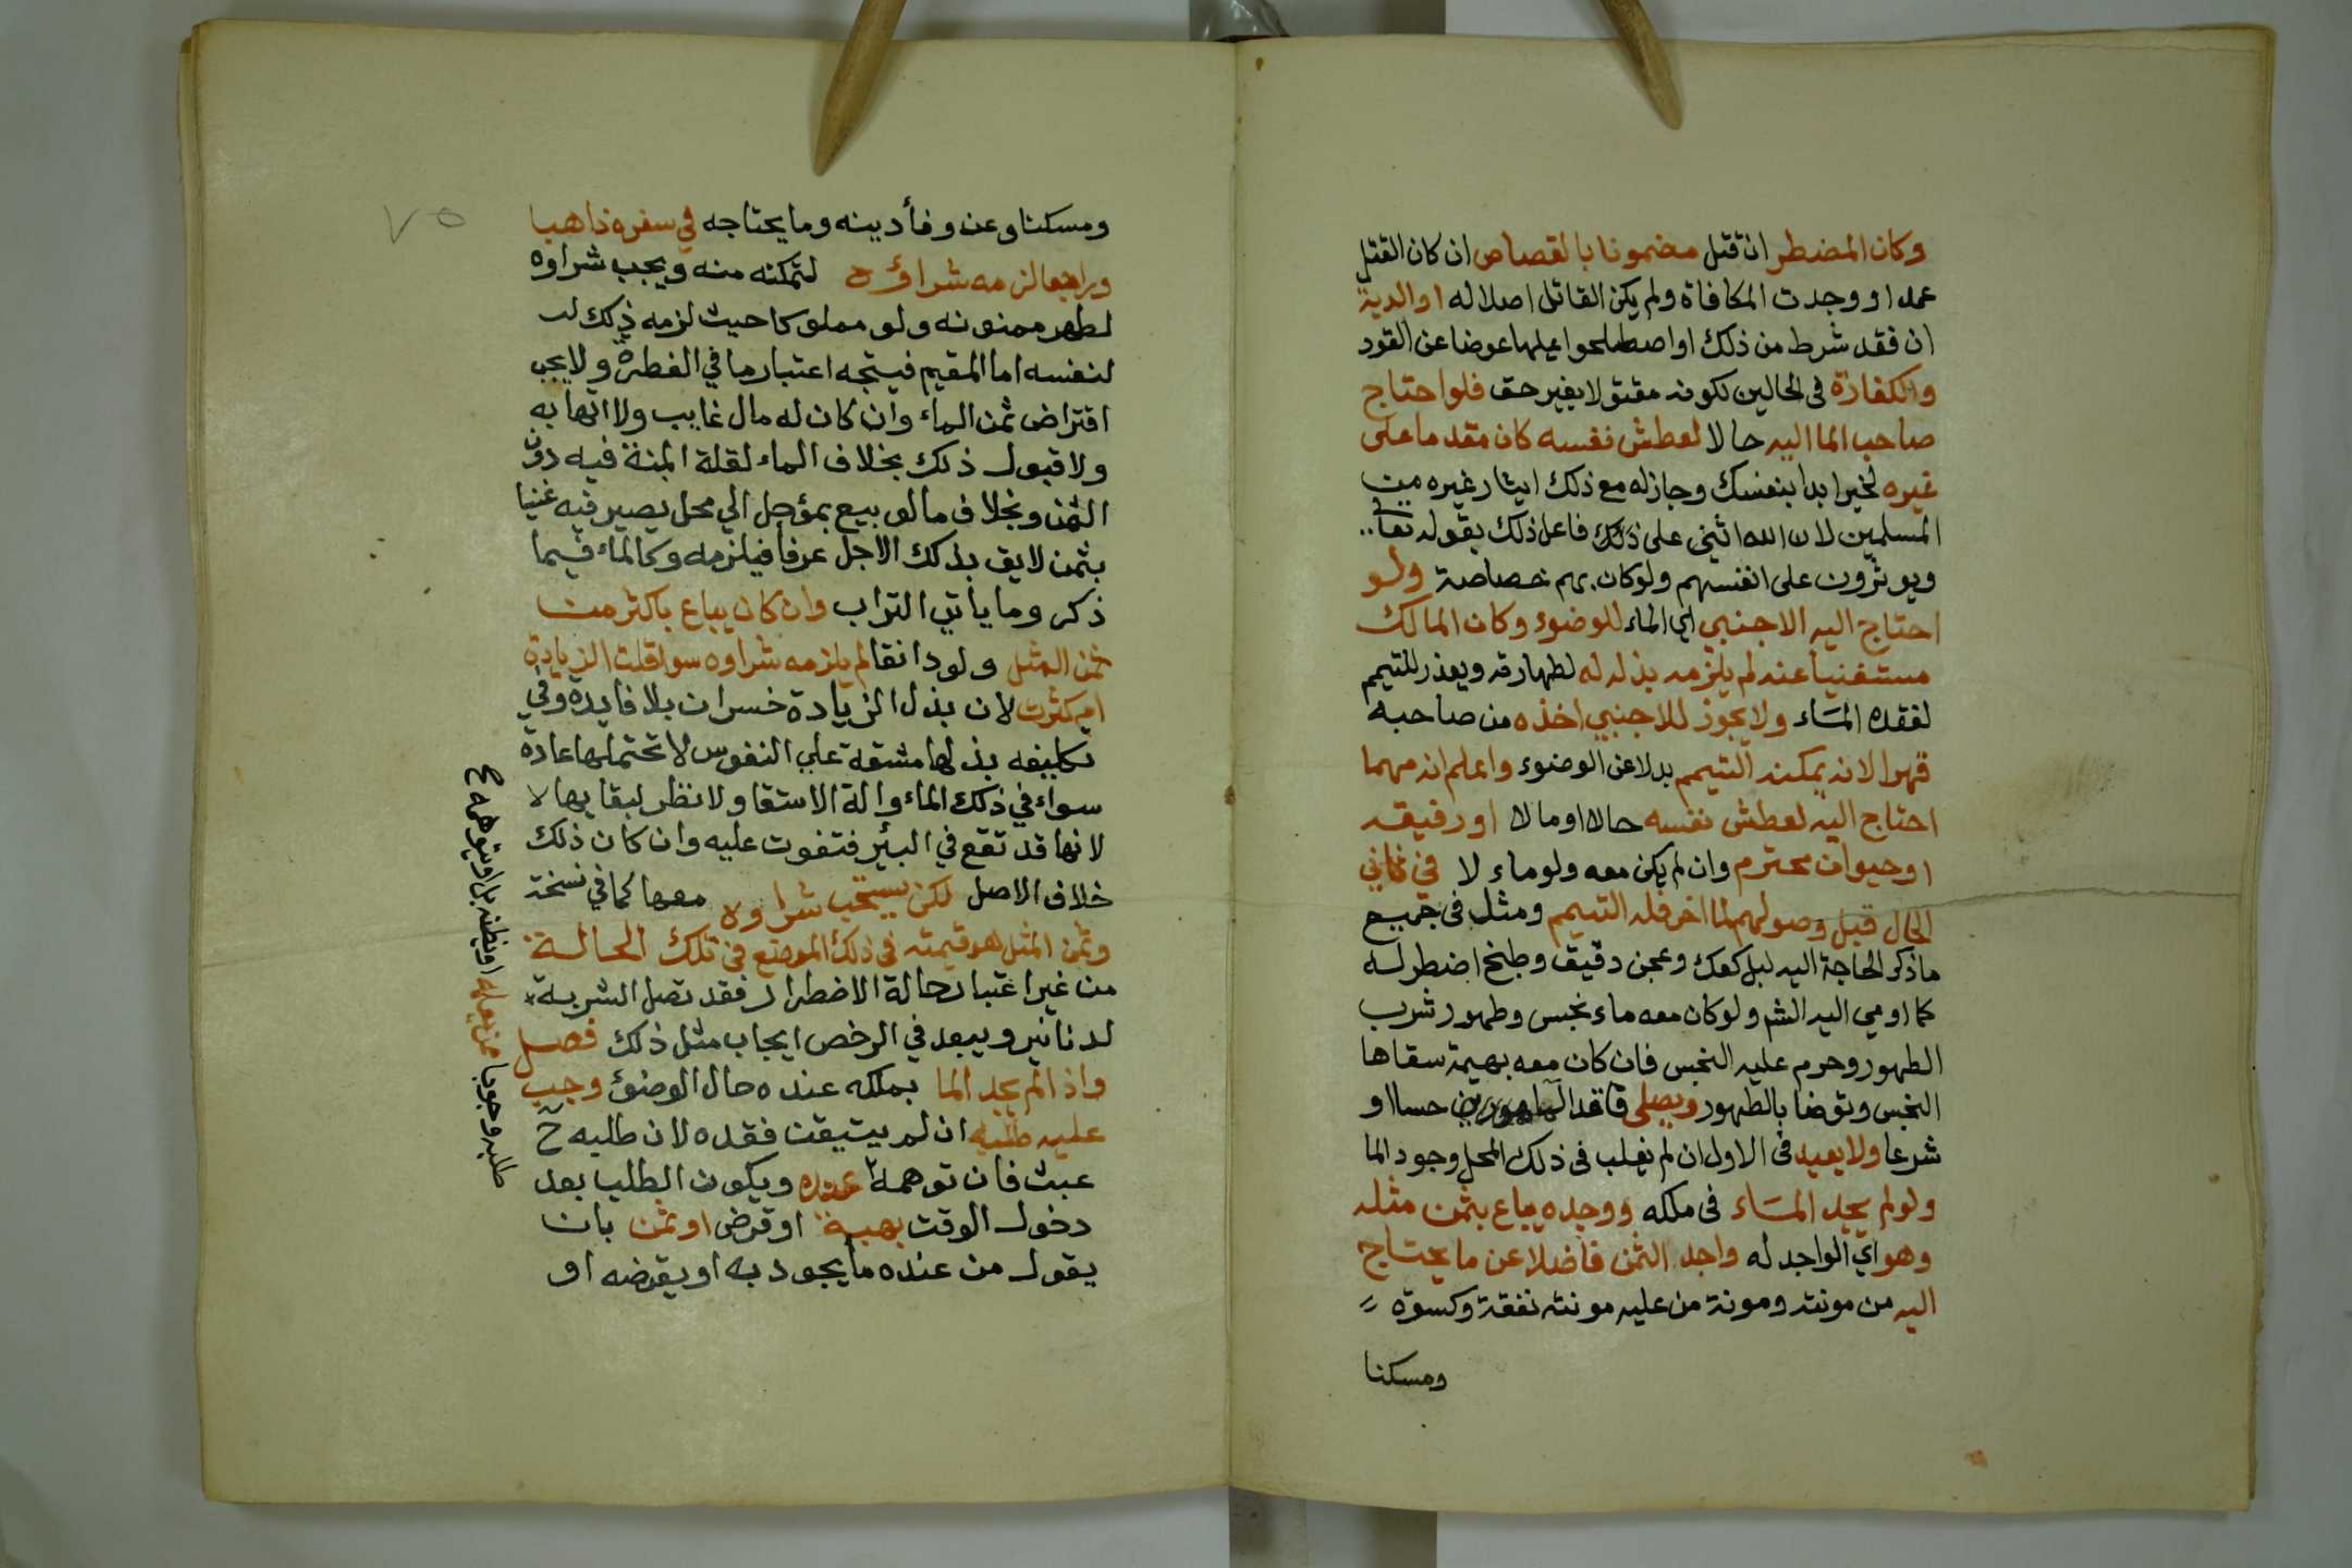 وكان المضطر ان قتل مضمونا بالقصاص ان كان القتل
عمدا ووجدت المكافاة ولم يكن القاتل اصلا له او الدية
ان فقد شرط من ذلك او اصطلحوا عليها عوضا عن القود
والكفارة فى الحالين لكونه مقتولا بغير حق فلو احتاج
صاحب الما اليه حالا لعطش نفسه كان مقدما على
غيره لخبر ابدا بنفسك وجاز له مع ذلك ايثار غيره من
المسلمين لان الله اثنى على ذلك فاعل ذلك بقوله تعا
ويوثرون على انفسهم ولو كان بهم خصاصة ولو
احتاج اليه الاجنبي اي الماء للوضوء وكان المالك
مستغنيا عنه لم يلزمه بذله له لطهارته ويعذر للتيمم
لفقده الماء ولا يجوز للاجنبي اخذه من صاحبه
قهرا لانه يمكنه التيمم بدلا عن الوضوء واعلم انه مهما
احتاج اليه لعطش نفسه حالا او مالا او رفيقه
او حيوان محترم وان لم يكن معه ولو ماء لا فى ثاني
الحال قبل وصولهم لما اخر فله التيمم ومثله فى جميع
ما ذكر الحاجة اليه لبل كعك وعجن دقيق وطبخ اضطر له
كما اومي اليه الشم ولو كان معه ماء نجس وطهور شرب
الطهور وحرم عليه النجس فان كان معه بهيمة سقاها
النجس وتوضا بالطهور ويصلى فاقد الطهورين حسا او
شرعا ولا يعيد فى الاول ان لم يغلب فى ذلك المحل وجود الما
ولو لم يجد الماء فى ملكه ووجده يباع بثمن مثله
وهو اي الواجد له واجد الثمن فاضلا عن ما يحتاج
اليه من مونته ومونة من عليه مونته نفقة وكسوة
ومسكنا
٧٥
ومسكنا وعن وفأ دينه وما يحتاجه في سفره ذاهبا
وراجعا لزمه شراؤه لتمكنه منه ويجب شراوه
لطهر ممنونه ولو مملوكا حيث لزمه ذلك
لنفسه اما المقيم فيتجه اعتبار ما في الفطرة ولا يجب
اقتراض ثمن الماء وان كان له مال غايب ولا اتهابه
ولا قبول ذلك بخلاف الماء لقلة المنة فيه دون
الثمن وبخلاف ما لو بيع بمؤجل الي محل يصير فيه غنيا
بثمن لايق بذلك الاجل عرفا فيلزمه وكالماء فيما
ذكر وما ياتي التراب وان كان يباع باكثر من
ثمن المثل ولو دانقا لم يلزمه شراوه سوا قلت الزيادة
ام كثرت لان بذل الزيادة خسران بلا فايدة وفي
تكليفه بذلها مشقة علي النفوس لا تحتملها عادة
سواء في ذلك الماء والة الاستقا ولا نظر لبقايها لا
لانها قد تقع في البئر فتفوت عليه وان كان ذلك
خلاف الاصل لكن يستحب شراوه معها كما في نسخة
وثمن المثل هو قيمته فى ذلك الموضع في تلك الحالة
من غير اعتبار حالة الاضطرار فقد تصل الشربة
لدنانير ويبعد في الرخص ايجاب مثل ذلك فصل
واذا لم يجد الما بملكه عنده حال الوضؤ وجب
عليه طلبه ان لم يتيقن فقده لان طلبه ح
عبث فان توهمه عنده ويكون الطلب بعد
دخول الوقت بهبة او قرض او ثمن بان
يقول من عنده ما يجود به او يقرضه او
طلبه وجوبا ممن يعلمه او يظنه بل او يتوهمه مع